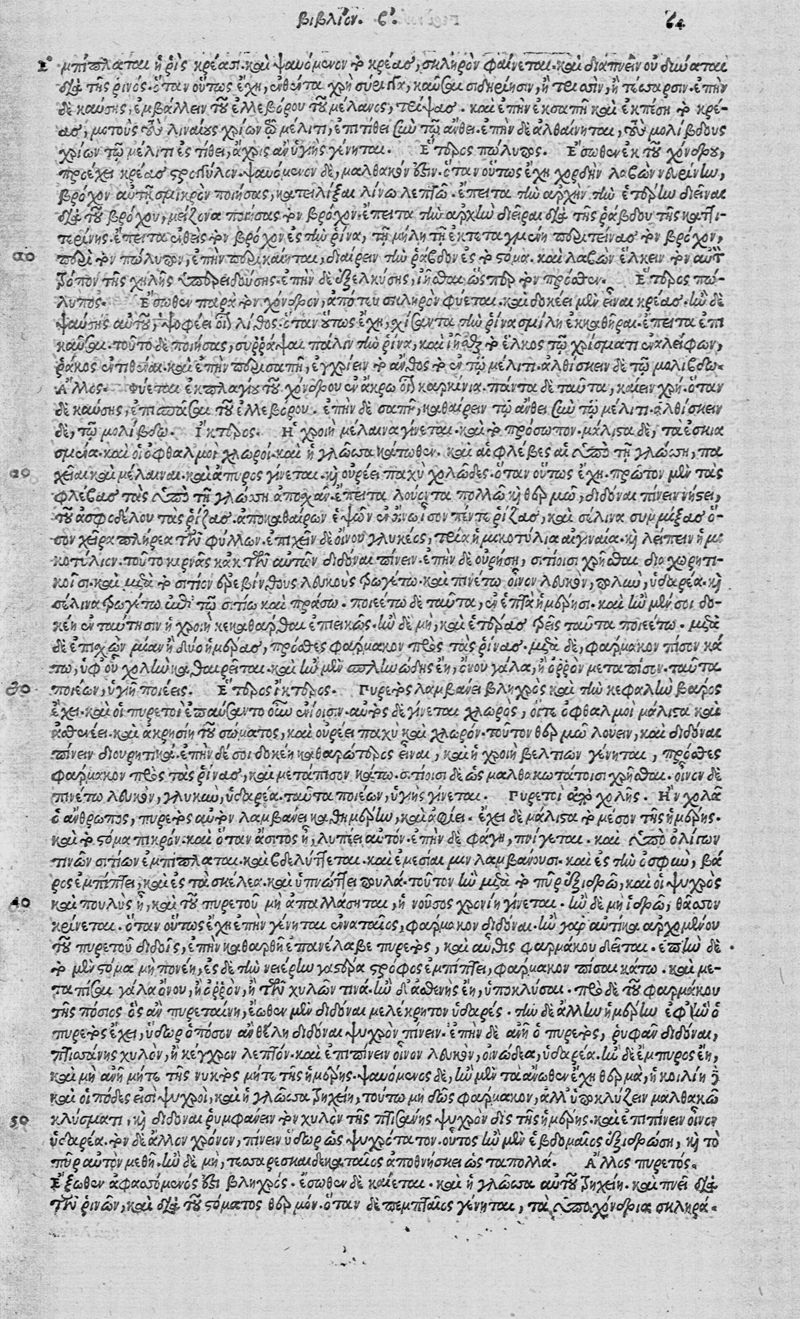 βιβλίον. ϛ̓. 64
ἐμπίπλαται ἡ ῥὶς κρέασι. καὶ ψαυόμενον τὸ κρέας, σκληρὸν φαίνεται. καὶ διαπνεῖν οὐ δύναται
διὰ τῆς ῥινός. ὅταν οὕτως ἔχῃ, ἐνθέντα χρὴ σύριγγα, καῦσαι σιδηρίοισιν, ἢ τρισὶν, ἢ τέσσαρσιν. ἐπὴν
δὲ καύσῃς, ἐμβάλλειν τοῦ ἐλλεβόρου τοῦ μέλανος, τρίψας. καὶ ἐπὴν ἐκσαπῇ καὶ ἐκπέσῃ τὸ κρέ-
ας, μοτοὺς τοὺς λινέους χρίων τῷ μέλιτι, ἐπιτίθει σὺν τῷ ἄνθει. ἐπὴν δὲ ἀλθαίνηται, τοὺς μολίβδους
χρίων τῷ μέλιτι ἐς τίθει, ἄχρις ἂν ὑγιὴς γένηται. Ἕτερος πώλυπος. Ἔσωθεν ἐκ τοῦ χόνδρου,
προέχει κρέας στρογγύλον. ψαυόμενον δὲ, μαλθακόν ἐστιν. ὅταν οὕτως ἔχῃ χορδὴν λαβὼν νευρίνην,
βρόχον αὐτῇ σμικρὸν ποιήσας, κατειλίξαι λίνῳ λεπτῷ. ἔπειτα τὴν ἀρχὴν τὴν ἑτέρην διεῖναι
διὰ τοῦ βρόχου, μείζονα ποιήσας τὸν βρόχον. ἔπειτα τὴν ἀρχὴν διεῖραι διὰ τῆς ῥάβδου τῆς κασσι-
τερίνης. ἔπειτα ἐνθεὶς τὸν βρόχον ἐς τὴν ῥῖνα, τῇ μήλῃ τῇ ἐντετμημένῃ περιτείνας τὸν βρόχον,
20 περὶ τὸν πώλυπον, ἐπὴν περικέηται, διαίρειν τὴν ῥάβδον ἐς τὸ στόμα. καὶ λαβὼν ἕλκειν τὸν αὐτὸν
τρόπον τῆς χηλῆς ὑπερειδούσης. ἐπὴν δὲ ἐξελκύσῃς, ἰῆσθαι ὥσπερ τὸν πρόσθεν. Ἕτερος πώ-
λυπος. Ἔσωθεν παρὰ τὸν χόνδρον, ἀπό τευ σκληρὸν φύεται. καὶ δοκέει μὲν εἶναι κρέας. ἢν δὲ
ψαύσῃς αὐτοῦ, ψοφέει οἷον λίθος. ὅταν οὕτως ἔχῃ, σχίσαντα τὴν ῥῖνα σμίλῃ ἐκκαθῆραι. ἔπειτα ἐπι
καῦσαι. τοῦτο δὲ ποιήσας, συρράψαι πάλιν τὴν ῥῖνα, καὶ ἰῆσθαι τὸ ἕλκος τῷ χρίσματι ἐναλείφων,
ῥάκος ἐντιθέναι. καὶ ἐπὴν περισαπῇ, ἐγχρίειν τὸ ἄνθος τὸ ἐν τῷ μέλιτι. ἀλθίσκειν δὲ τῷ μολίβδῳ.
Ἄλλος. Φύεται ἐκ πλαγίου τοῦ χόνδρου ἐν ἄκρῳ οἷον καρκίνια. πάντα δὲ ταῦτα, καίειν χρή. ὅταν
δὲ καύσῃς, ἐπιπάσαι τοῦ ἐλλεβόρου. ἐπὴν δὲ σαπῇ, καθαίρειν τῷ ἄνθει σὺν τῷ μέλιτι. ἀλθίσκειν
δὲ, τῷ μολίβδῳ. Ἴκτερος. Ἡ χροιὴ μέλαινα γίνεται. καὶ τὸ πρόσωπον. μάλιστα δὲ, τὰ ἐσκια
σμένα. καὶ οἱ ὀφθαλμοὶ χλωροί. καὶ ἡ γλῶσσα κάτωθεν. καὶ αἱ φλέβες αἱ ὑπὸ τῇ γλώσσῃ, πα
20 χεῖαι καὶ μέλαιναι. καὶ ἄπυρος γίνεται. καὶ οὐρέει παχὺ χολῶδες. ὅταν οὕτως ἔχῃ. πρῶτον μὲν τὰς
φλέβας τὰς ὑπὸ τῇ γλώσσῃ ἀποσχᾶν. ἔπειτα λούοντα πολλῷ καὶ θερμῷ, διδόναι πίνειν νήστει,
τοῦ ἀσφοδέλου τὰς ῥίζας. ἀποκαθαίρων ἑψῶν ἐν οἴνῳ ὅσον πέντε ῥίζας, καὶ σέλινα συμμίξας ὅ-
σον χεῖρα πλήρεα τῶν φύλλων. ἐπιχεῖν δὲ οἴνου γλυκέος, τρία ἡμικοτύλια αἰγιναῖα. καὶ λείπειν ἡμι
κοτύλιον. τοῦτο κιρνὰς κἀκ τῶν αὐτῶν διδόναι πίνειν. ἐπὴν δὲ οὐρήσῃ, σιτίοισι χρῆσθαι διαχωρητι-
κοῖσι. καὶ μετὰ τὸ σιτίον ἐρεβίνθους λευκοὺς φαγέτω. καὶ πινέτω οἶνον λευκὸν, πολὺν, ὑδαρέα. καὶ
σέλινα φαγέτω ἐπὶ τῷ σιτίῳ καὶ πράσα. ποιείτω δὲ ταῦτα, ἐν ἑπτὰ ἡμέρῃσι. καὶ ἢν μέν σοι δο-
κέῃ ἐν ταύτῃσιν ἡ χροιὴ κεκαθάρθαι ἐπιεικῶς. ἢν δὲ μὴ, καὶ ἑτέρας τρεῖς ταῦτα ποιείτω. μετὰ
δὲ ἐπισχὼν μίαν ἢ δύο ἡμέρας, πρόσθες φάρμακον πρὸς τὰς ῥῖνας. μετὰ δὲ, φάρμακον πῖσον κά
τω, ὑφ' οὗ χολὴν καθαίρεται. καὶ ἢν μὲν σπληνώδης ἔῃ, ὄνου γάλα, ἢ ὀρρὸν μετάπισον. ταῦτα
30 ποιέων, ὑγιῆ ποιέεις. Ἕτερος ἴκτερος. Πυρετὸς λαμβάνει βληχρὸς καὶ τὴν κεφαλὴν βάρος
ἔχει. καὶ οἱ πυρετοὶ ἐπαύσαντο οὖν ἐνίοισιν. αὐτὸς δὲ γίνεται χλωρὸς, οἵ τε ὀφθαλμοὶ μάλιστα καὶ
ἀσθενέει. καὶ ἀκρησίη τοῦ σώματος, καὶ οὐρέει παχὺ καὶ χλωρόν. τοῦτον θερμῷ λούειν, καὶ διδόναι
πίνειν διουρητικά. ἐπὴν δέ σοι δοκέῃ καθαρώτερος εἶναι, καὶ ἡ χροιὴ βελτίων γένηται, πρόσθες
φάρμακον πρὸς τὰς ῥῖνας, καὶ μετάπισον κάτω. σιτίοισι δὲ ὡς μαλθακωτάτοισι χρῆσθαι. οἶνον δὲ
πινέτω λευκὸν, γλυκὺν, ὑδαρέα. ταῦτα ποιέων, ὑγιὴς γίνεται. Πυρετοὶ ἀπὸ χολῆς. Ἢν χολᾷ
ὁ ἄνθρωπος, πυρετὸς αὐτὸν λαμβάνει καθ' ἡμέρην, καὶ ἀφίει. ἔχει δὲ μάλιστα τὸ μέσον τῆς ἡμέρης.
καὶ τὸ στόμα πικρόν. καὶ ὅταν ἄσιτος ᾖ, λυπέει αὐτόν. ἐπὴν δὲ φάγῃ, πνίγεται. καὶ ὑπὸ ὀλίγων
τινῶν σιτίων ἐμπίπλαται. καὶ βδελύττεται. καὶ ἐμέσιαί μιν λαμβάνουσι. καὶ ἐς τὴν ὀσφὺν, βά
ρος ἐμπίπτει, καὶ ἐς τὰ σκέλεα. καὶ ὑπνώττει πουλά. τοῦτον ἢν μετὰ τὸ πῦρ ἐξιδρῷ, καὶ οἱ ψυχρὸς
40 καὶ πουλὺς ᾖ, καὶ τοῦ πυρετοῦ μὴ ἀπαλλάσσηται, ἡ νοῦσος χρονίη γίνεται. ἢν δὲ μὴ ἱδρῷ, θᾶσσον
κρίνεται. ὅταν οὕτως ἔχῃ ἐπὴν γένηται ἐναταῖος, φάρμακον διδόναι. ἢν γὰρ αὐτίκα ἀρχομένου
τοῦ πυρετοῦ διδοῖς, ἐπὴν καθαρθῇ ἐπανέλαβε πυρετὸς, καὶ αὖθις φαρμάκου δεῖται. ἐπὴν δὲ
τὸ μὲν στόμα μὴ πονέῃ, ἐς δὲ τὴν νειαίρην γαστέρα στρόφος ἐμπίπτῃ, φάρμακον πῖσαι κάτω. καὶ με-
ταπῖσαι γάλα ὄνου, ἢ ὀρρὸν, ἢ τῶν χυλῶν τινά. ἢν δὲ ἀσθενὴς ἔῃ, ὑποκλύσαι. πρὸ δὲ τοῦ φαρμάκου
τῆς πόσιος ὃς ἂν πυρεταίνῃ, ἕωθεν μὲν διδόναι μελίκρητον ὑδαρές. τὴν δὲ ἄλλην ἡμέρην ἐφ' ἣν ὁ
πυρετὸς ἔχει, ὕδωρ ὁπόσον ἂν θέλῃ διδόναι ψυχρὸν πίνειν. ἐπὴν δὲ ἀνῇ ὁ πυρετὸς, ῥυφᾶν διδόναι,
πτισάνης χυλὸν, ἢ κέγχρον λεπτόν. καὶ ἐπιπίνειν οἶνον λευκὸν, οἰνώδεα, ὑδαρέα. ἢν δὲ ἔμπυρος ἔῃ,
καὶ μὴ ἀνῇ μήτε τῆς νυκτὸς μήτε τῆς ἡμέρης. ψαυόμενος δὲ, ἢν μὲν τὰ ἄνωθεν ἔχῃ θερμὰ, ἡ κοιλίη δὲ
καὶ οἱ πόδες εἰσὶ ψυχροὶ, καὶ ἡ γλῶσσα τρηχείη, τούτῳ μὴ δῷς φάρμακον, ἀλλ' ὑποκλύζειν μαλθακῷ
50 κλύσματι, καὶ διδόναι ῥυμφάνειν τὸν χυλὸν τῆς πτισάνης ψυχρὸν δὶς τῆς ἡμέρης. καὶ ἐπιπίνειν οἶνον
ὑδαρέα. τὸν δὲ ἄλλον χρόνον, πίνειν ὕδωρ ὡς ψυχρότατον. οὗτος ἢν μὲν ἑβδομαῖος ἐξιδρώσῃ, καὶ τὸ
πῦρ αὐτὸν μεθῇ. ἢν δὲ μὴ, τεσσαρεσκαιδεκαταῖος ἀποθνήσκει ὡς τὰ πολλά. Ἄλλος πυρετός.
Ἔξωθεν ἀφασσόμενός ἐστι βληχρός. ἔσωθεν δὲ καίεται. καὶ ἡ γλῶσσα αὐτοῦ τρηχείη. καὶ πνεῖ διὰ
τῶν ῥινῶν, καὶ διὰ τοῦ στόματος θερμόν. ὅταν δὲ πεμπταῖος γένηται, τὰ ὑποχόνδρια σκληρά.